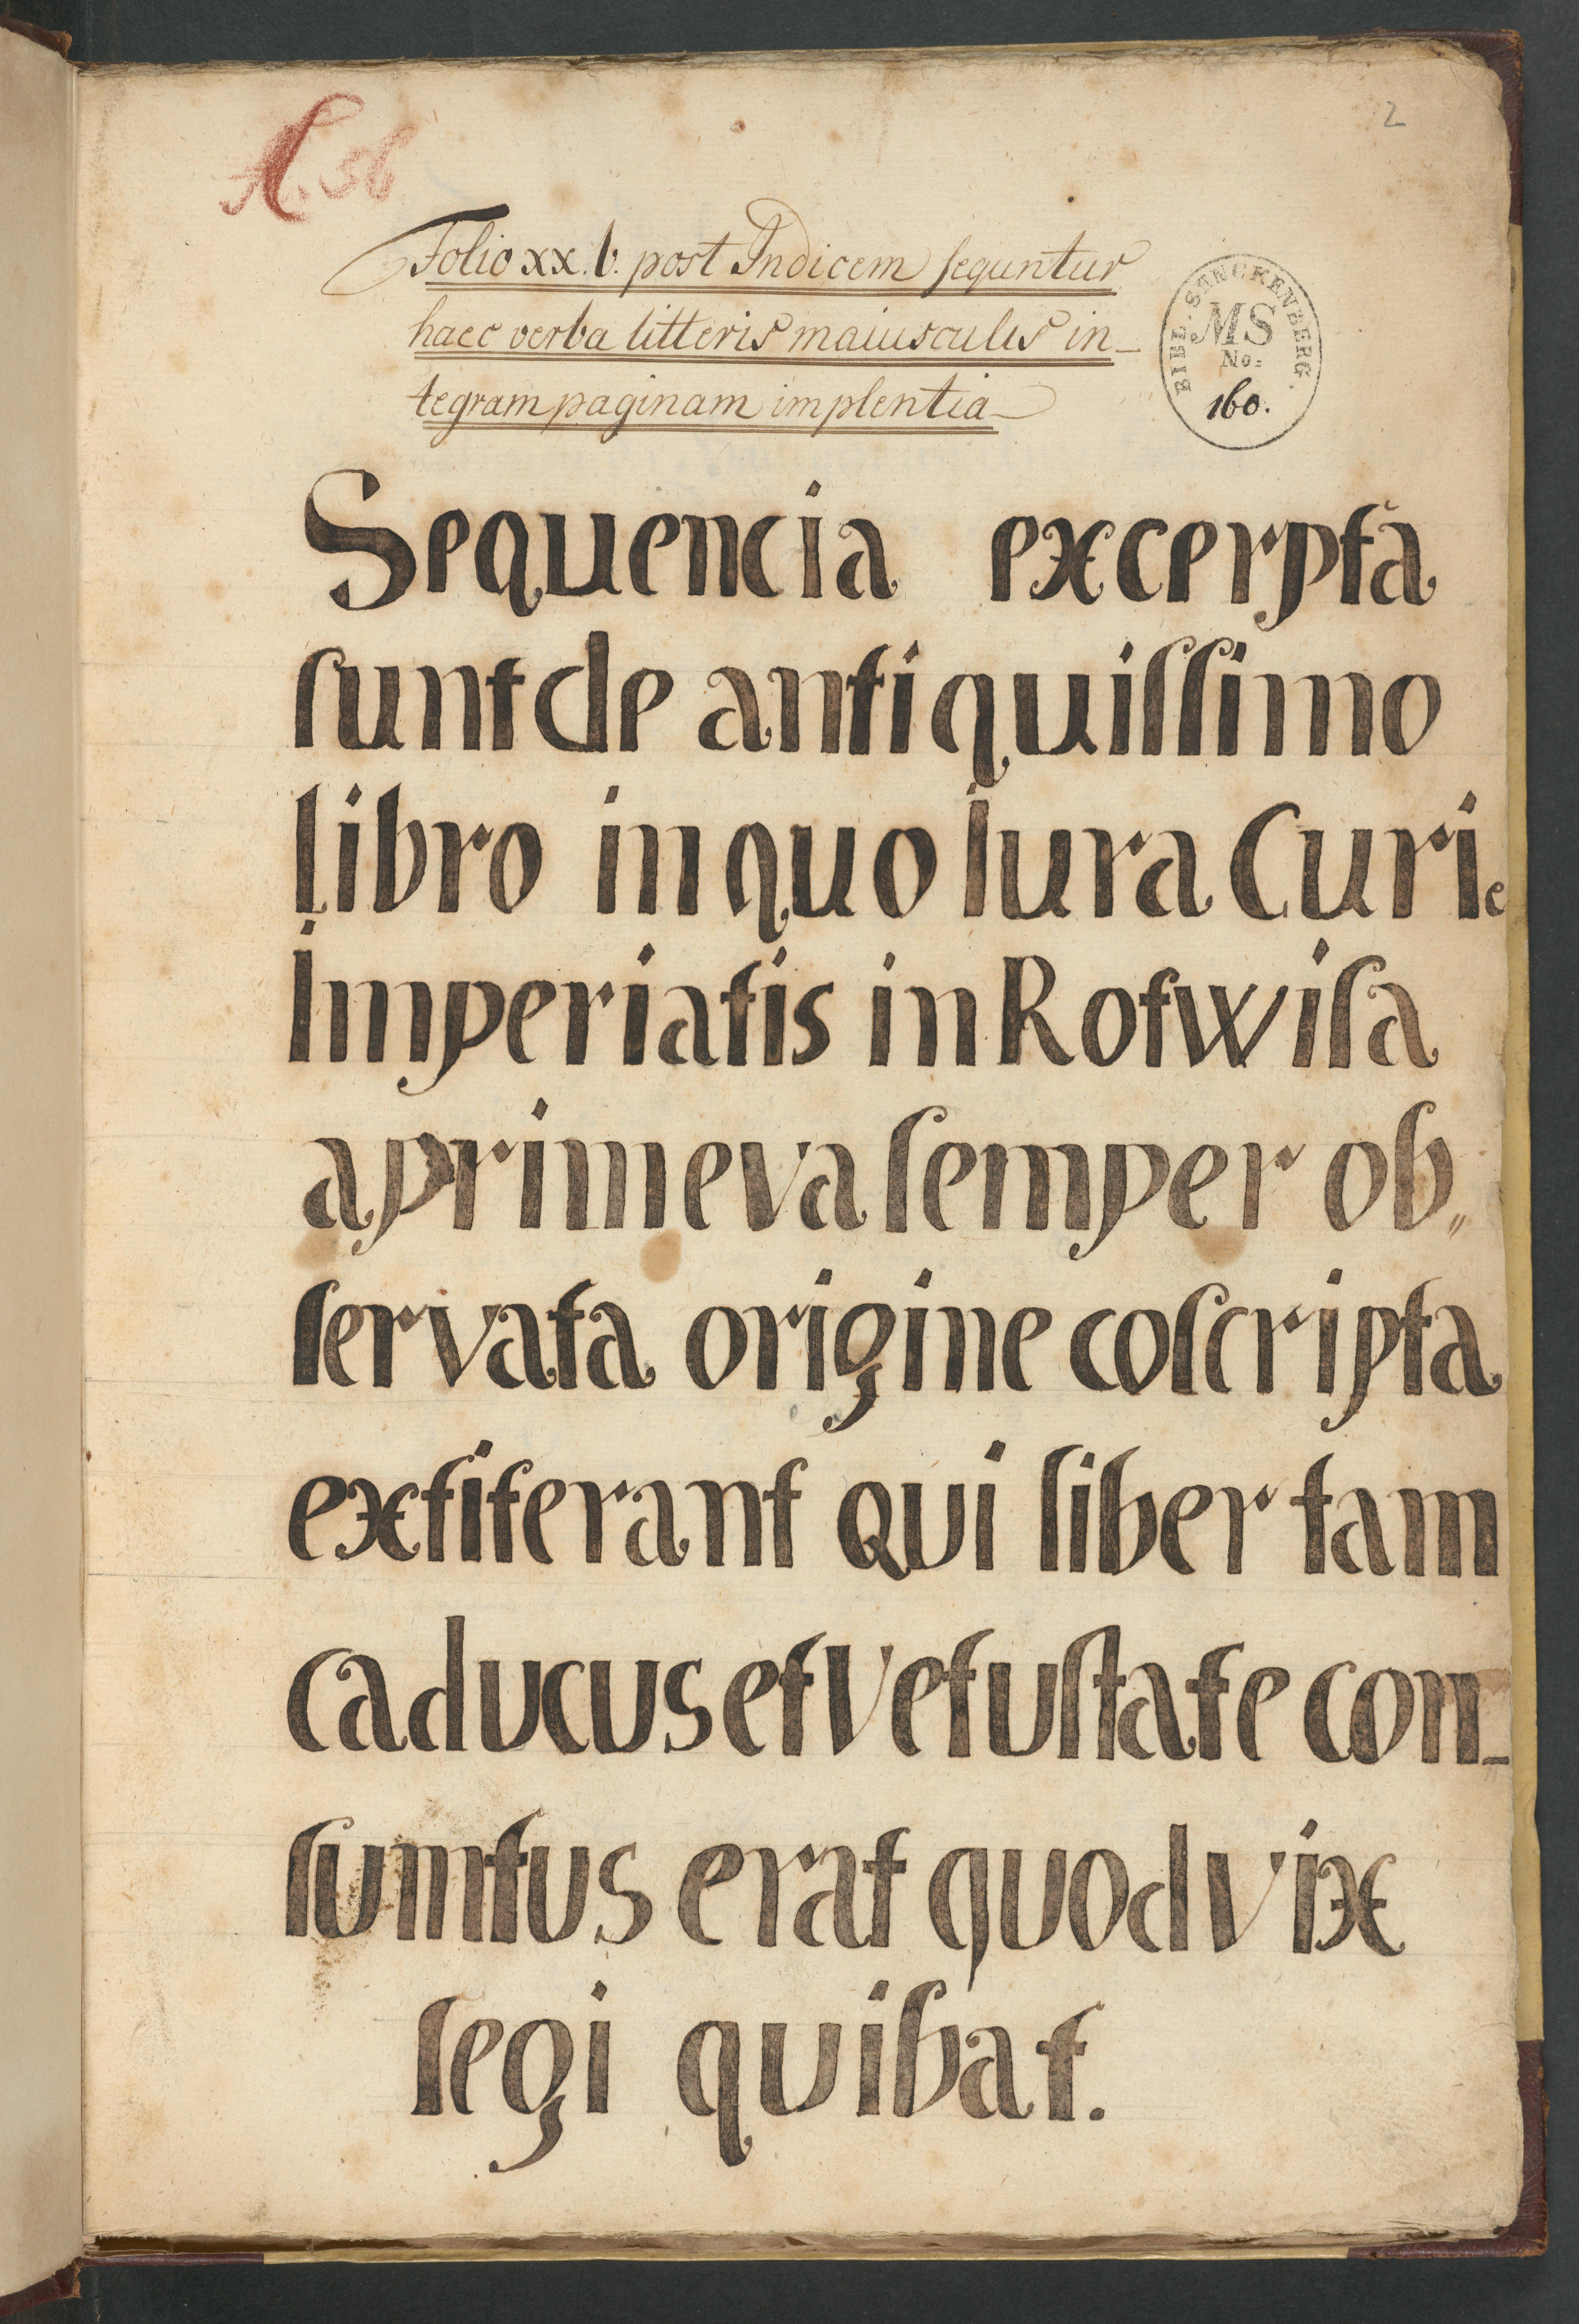 2
A. 36
Folio xx. b. post Indicem sequntur
haec verba litteris maiusculis in-
tegram paginam implentia
BIBL. SENCKENBERG.
MS
No:
160.
Sequencia excerpta
sunt de antiquiſſimo
libro in quo Iura Curie
Imperialis in Rotwila
a primeva ſemper ob„
ſervata origine coſcripta
extiterant qui liber tam
caducus et vetuſtate con-
ſumtus erat quod vix
legi quibat.